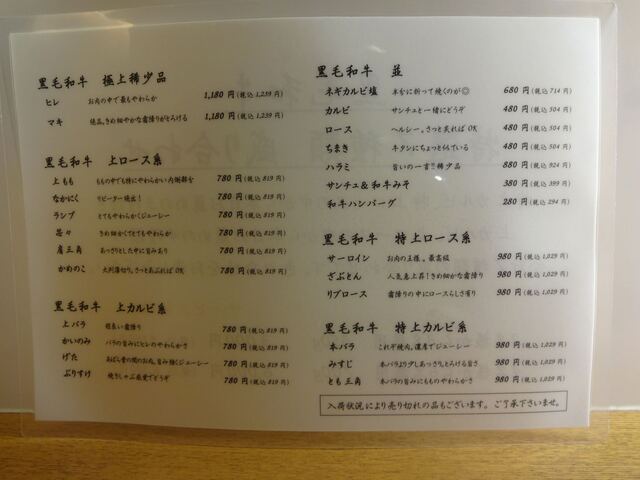 黒毛和牛 極上稀少品
ヒレ お肉の中で最もやわらか 1,180 円(税込 1,239 円)
マキ 絶品。きめ細やかな霜降りがとろける 1,180 円(税込 1,239 円)
黒毛和牛 上ロース系
上もも ももの中でも特にやわらかい内側部分 780 円(税込 819 円)
なかにく リピーター続出! 780 円(税込 819 円)
ランプ とてもやわらかくジューシー 780 円(税込 819 円)
芯々 きめ細かくてとてもやわらか 780 円(税込 819 円)
肩三角 あっさりとした中に旨みあり 780 円(税込 819 円)
かめのこ 大判薄切り。さっとあぶれば OK 780 円(税込 819 円)
黒毛和牛 上カルビ系
上バラ 程良い霜降り 780 円(税込 819 円)
かいのみ バラの旨みにヒレのやわらかさ 780 円(税込 819 円)
げた あばら骨の間のお肉。旨み強くジューシー 780 円(税込 819 円)
ぶりすけ 焼きしゃぶ感覚でどうぞ 780 円(税込 819 円)
黒毛和牛 並
ネギカルビ塩 半分に折って焼くのが◎ 680 円(税込 714 円)
カルビ サンチュと一緒にどうぞ 480 円(税込 504 円)
ロース ヘルシー。さっと炙れば OK 480 円(税込 504 円)
ちまき 牛タンにちょっと似ている 480 円(税込 504 円)
ハラミ 旨いの一言!!稀少品 880 円(税込 924 円)
サンチュ&和牛みそ 380 円(税込 399 円)
和牛ハンバーグ 280 円(税込 294 円)
黒毛和牛 特上ロース系
サーロイン お肉の王様。最高級 980 円(税込 1,029 円)
ざぶとん 人気急上昇!きめ細かな霜降り 980 円(税込 1,029 円)
リブロース 霜降りの中にロースらしさ有り 980 円(税込 1,029 円)
黒毛和牛 特上カルビ系
本バラ これぞ焼肉。濃厚でジューシー 980 円(税込 1,029 円)
みすじ 本バラより少しあっさり。とろける旨さ 980 円(税込 1,029 円)
とも三角 本バラの旨みにもものやわらかさ 980 円(税込 1,029 円)
入荷状況により売り切れの品もございます。ご了承下さいませ。